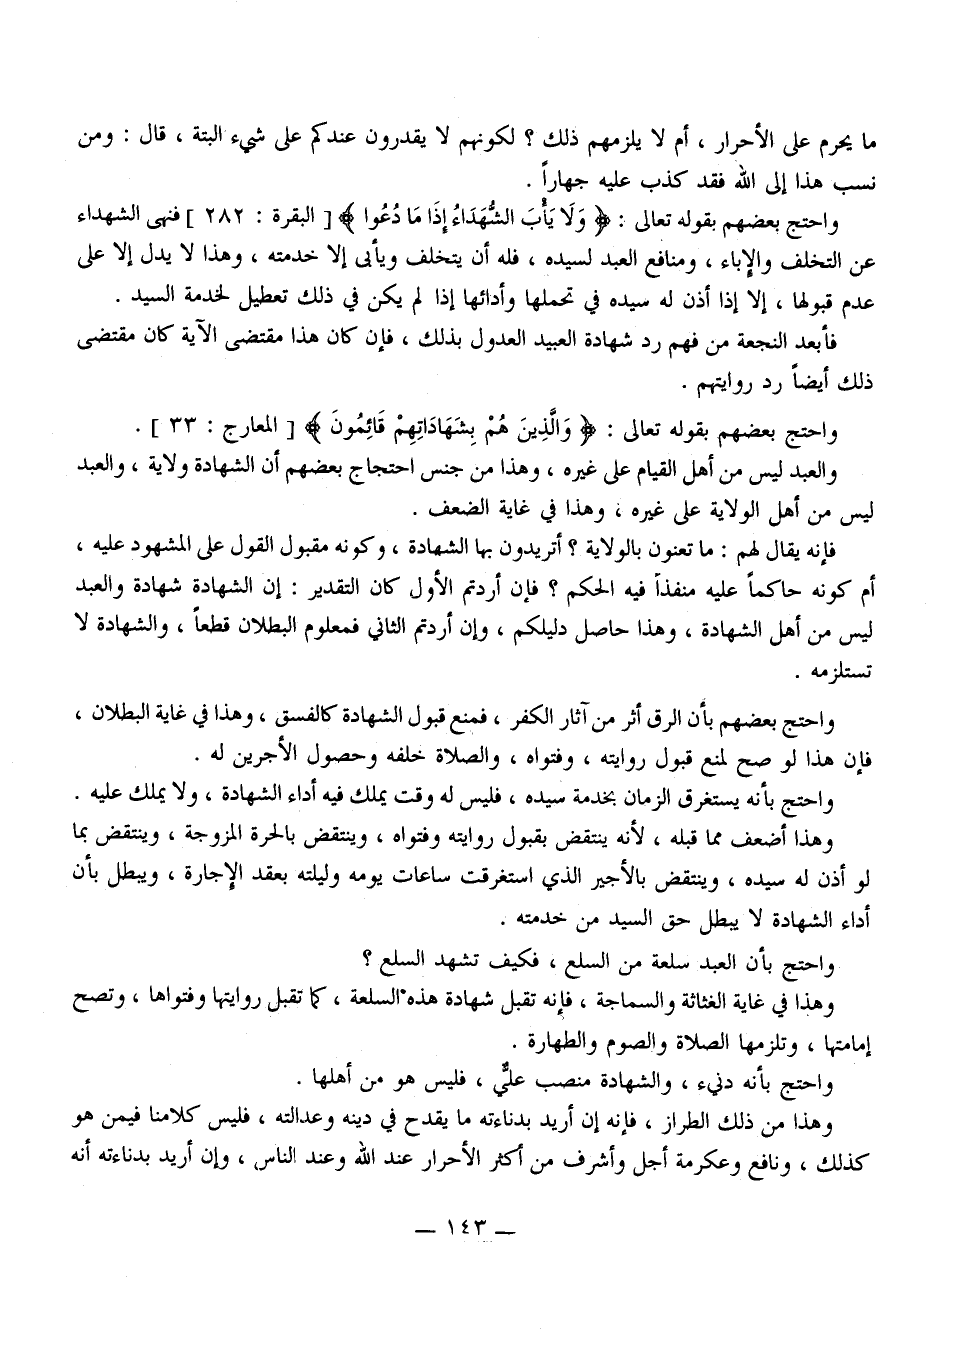 ما يحرم على الأحرار ، أم لا يلزمهم ذلك ؟ لكونهم لا يقدرون عندكم على شيء البتة ، قال : ومن
نسب هذا إلى الله فقد كذب عليه جهاراً .
واحتج بعضهم بقوله تعالى : ﴿ وَلَا يَأْبَ الشُّهَدَاءُ إِذَا مَا دُعُوا ﴾ [ البقرة : ٢٨٢ ] فنهى الشهداء
عن التخلف والإباء ، ومنافع العبد لسيده ، فله أن يتخلف ويأبى إلا خدمته ، وهذا لا يدل إلا على
عدم قبولها ، إلا إذا أذن له سيده في تحملها وأدائها إذا لم يكن في ذلك تعطيل لخدمة السيد .
فأبعد النجعة من فهم رد شهادة العبيد العدول بذلك ، فإن كان هذا مقتضى الآية كان مقتضى
ذلك أيضاً رد روايتهم .
واحتج بعضهم بقوله تعالى : ﴿ وَالَّذِينَ هُمْ بِشَهَادَاتِهِمْ قَائِمُونَ ﴾ [ المعارج : ٣٣ ] .
والعبد ليس من أهل القيام على غيره ، وهذا من جنس احتجاج بعضهم أن الشهادة ولاية ، والعبد
ليس من أهل الولاية على غيره ، وهذا في غاية الضعف .
فإنه يقال لهم : ما تعنون بالولاية ؟ أتريدون بها الشهادة ، وكونه مقبول القول على المشهود عليه ،
أم كونه حاكماً عليه منفذاً فيه الحكم ؟ فإن أردتم الأول كان التقدير : إن الشهادة شهادة والعبد
ليس من أهل الشهادة ، وهذا حاصل دليلكم ، وإن أردتم الثاني فمعلوم البطلان قطعاً ، والشهادة لا
تستلزمه .
واحتج بعضهم بأن الرق أثر من آثار الكفر ، فمنع قبول الشهادة كالفسق ، وهذا في غاية البطلان ،
فإن هذا لو صح لمنع قبول روايته ، وفتواه ، والصلاة خلفه وحصول الأجرين له .
واحتج بأنه يستغرق الزمان بخدمة سيده ، فليس له وقت يملك فيه أداء الشهادة ، ولا يملك عليه .
وهذا أضعف مما قبله ، لأنه ينتقض بقبول روايته وفتواه ، وينتقض بالحرة المزوجة ، وينتقض بما
لو أذن له سيده ، وينتقض بالأجير الذي استغرقت ساعات يومه وليلته بعقد الإجارة ، ويبطل بأن
أداء الشهادة لا يبطل حق السيد من خدمته .
واحتج بأن العبد سلعة من السلع ، فكيف تشهد السلع ؟
وهذا في غاية الغثاثة والسماجة ، فإنه تقبل شهادة هذه السلعة ، كما تقبل روايتها وفتواها ، وتصح
إمامتها ، وتلزمها الصلاة والصوم والطهارة .
واحتج بأنه دنيء ، والشهادة منصب عليٌّ ، فليس هو من أهلها .
وهذا من ذلك الطراز ، فإنه إن أريد بدناءته ما يقدح في دينه وعدالته ، فليس كلامنا فيمن هو
كذلك ، ونافع وعكرمة أجل وأشرف من أكثر الأحرار عند الله وعند الناس ، وإن أريد بدناءته أنه
— ١٤٣ —